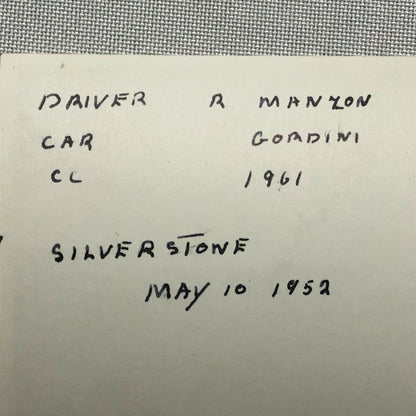 DRIVER R MANZON
CAR GORDINI
CC 1961
SILVERSTONE
MAY 10 1952